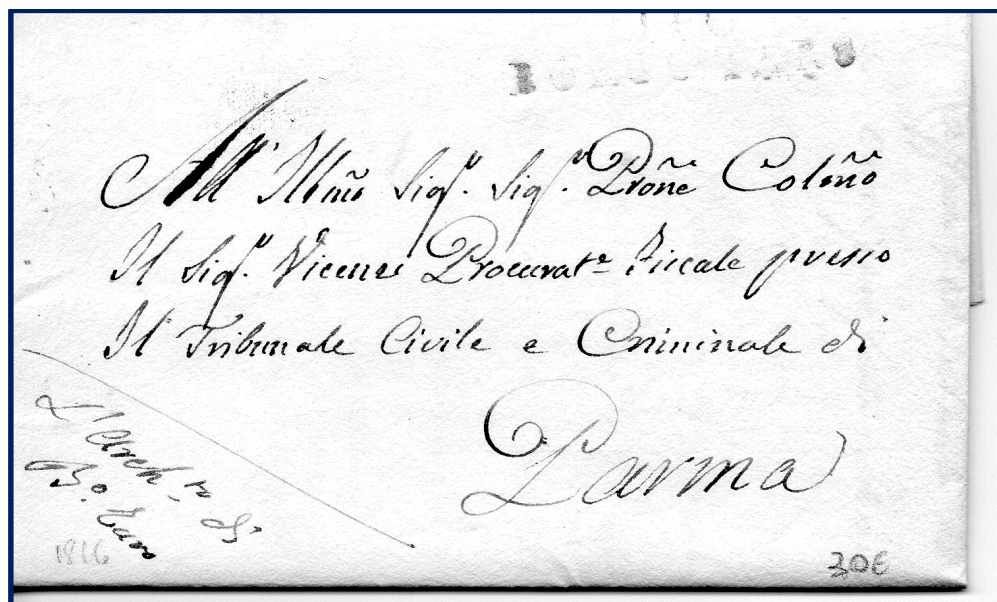 All' Illmo Sigr. Sigr. Prone Colmo
Il Sigr. Vicenzi Procurate Fiscale presso
Il Tribunale Civile e Criminale di
Parma
L'Arch.re di
B.o Taro
1816
30€